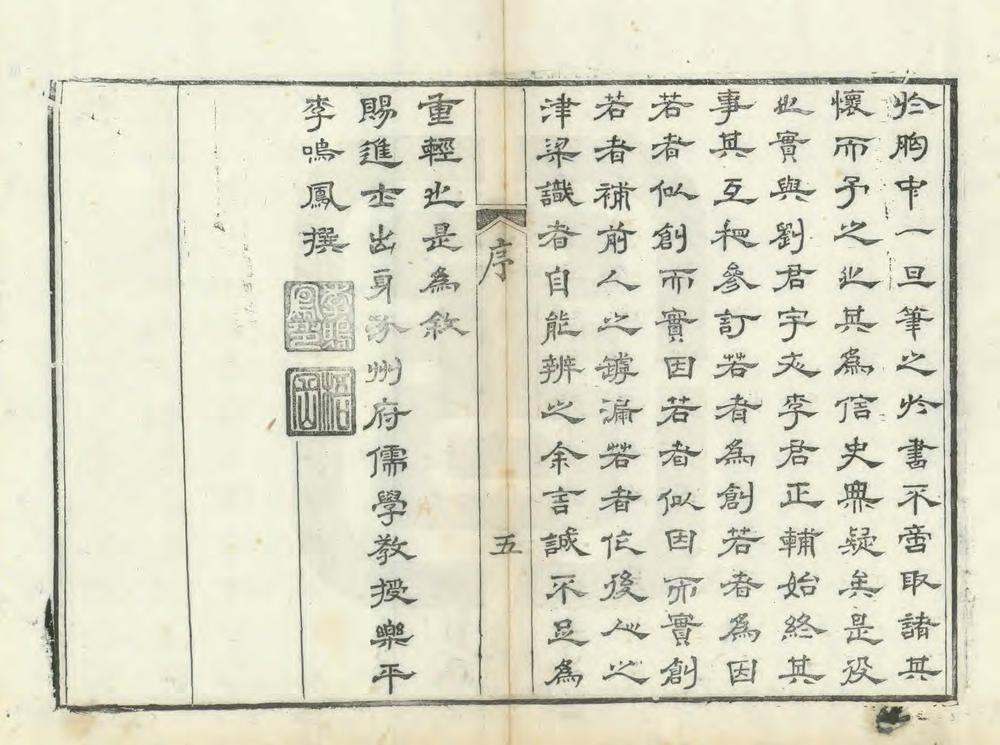 於胸中一旦筆之於書不啻取諸其
懷而予之也其為信史無疑矣是役
也實與劉君宇夾李君正輔始終其
事其互相參訂若者為創若者為因
若者似創而實因若者似因而實創
若者補前人之罅漏若者作後人之
津梁識者自能辨之余言誠不足為
序
五
重輕也是為敘
賜進士出身 州府儒學教授樂平
李鳴鳳撰
李鳴鳳